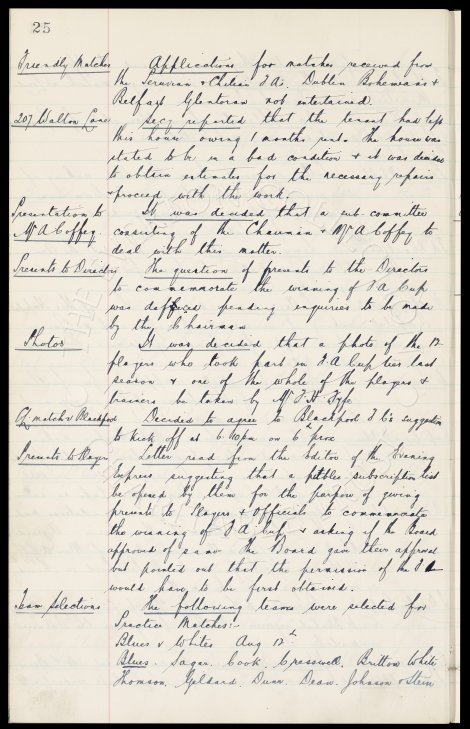 25
Friendly Matches Applications for matches received from
the Peruvian & Chilian F.A's, Dublin Bohemians &
Belfast Glentoran not entertained.
207 Walton Lane Secy reported that the tenant had left
this house owing 1 months rent. The house was
stated to be in a bad condition & it was decided
to obtain estimates for the necessary repairs
& proceed with the work.
Presentation to It was decided that a sub-committee
Mr A Coffey. consisting of the Chairman & Mr A Coffey to
deal with this matter.
Presents to Directors The question of presents to the Directors
to commemorate the winning of F A Cup
was deffered pending enquiries to be made
by the Chairman
Photos It was decided that a photo of the 12
players who took part in F.A Cup ties last
season & one of the whole of the players &
trainers be taken by Mr F. H. Fyfe
match v Blackpool Decided to agree to Blackpool F.C's suggestion
to kick off at 6.40pm on 6th prox
Presents to Players Letter read from the Editor of the Evening
Express suggesting that a subscription list
be opened by them for the purpose of giving
presents to Players & Officials to commemorate
the winning of F A Cup & asking if the Board
approved of same. The Board gave their approval
but pointed out that the permission of the F A
would have to be first obtained.
Team Selections The following teams were selected for
Practice Matches:-
Blues v Whites Aug 12th
Blues. Sagar. Cook. Cresswell. Britton White
Thomson. Geldard. Dunn. Dean. Johnson & Stein